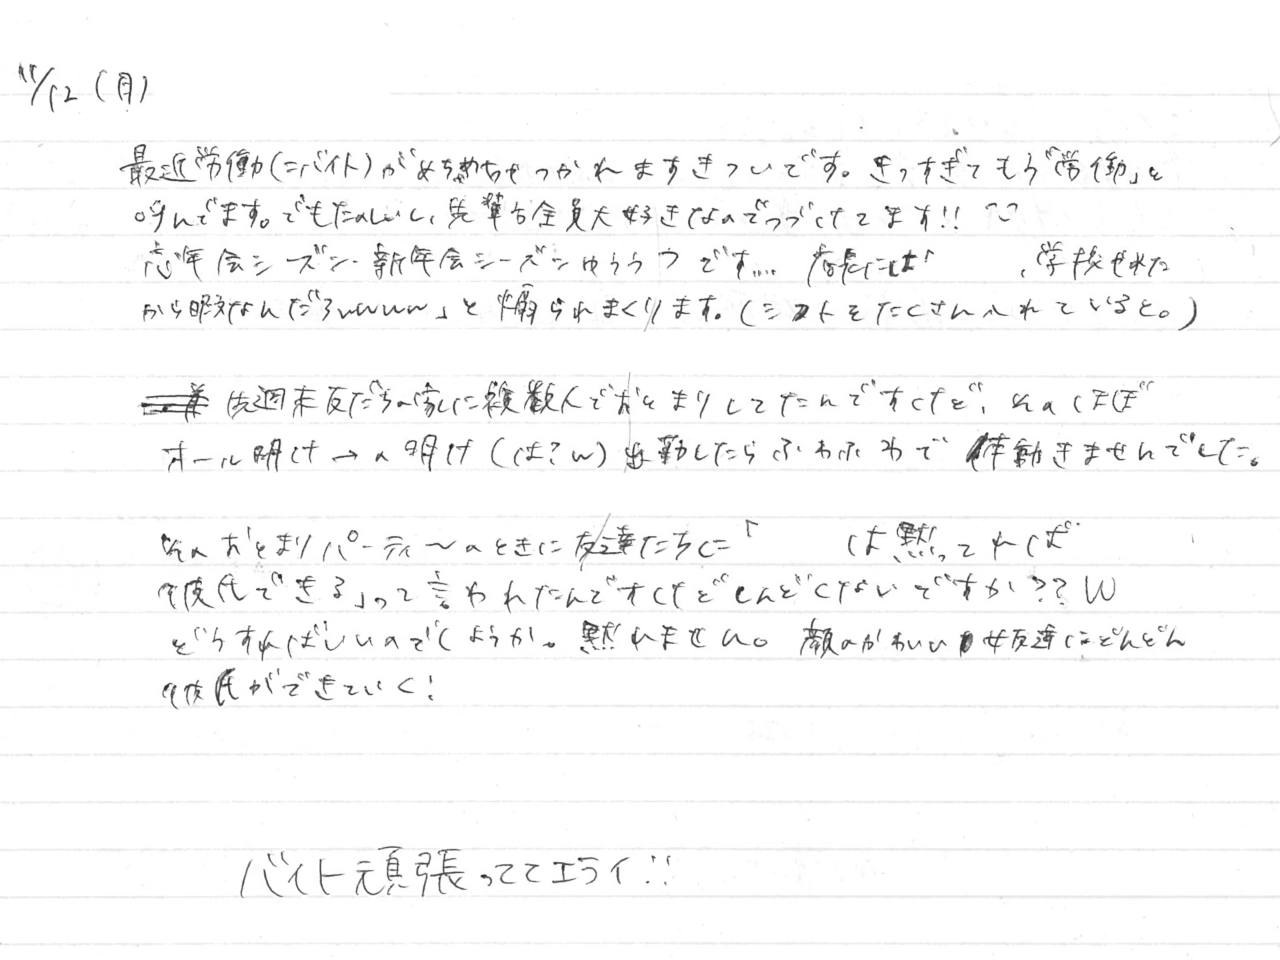 11/12(月)
最近労働(=バイト)がめちゃめちゃつかれますきついです。きつすぎてもう「労働」と
呼んでます。でもたのしいし、先輩も全員大好きなのでつづけてます!!
忘年会シーズン・新年会シーズンゆううつです.... 店長には「 、学校やめた
から暇なんだろwwww」と煽られまくります。(シフトをたくさん入れていると。)
先週末友だちの家に複数人でおとまりしてたんですけど、そのほぼ
オール明け→の明け(は?w)出勤したらふわふわで体動きませんでした。
そのおとまりパーティ〜のときに友達たちに「 は黙ってれば
彼氏できる」って言われたんですけどしんどくないですか??W
どうすればいいのでしょうか。黙れません。顔のかわいい女友達はどんどん
彼氏ができていく!
バイト頑張っててエライ!!